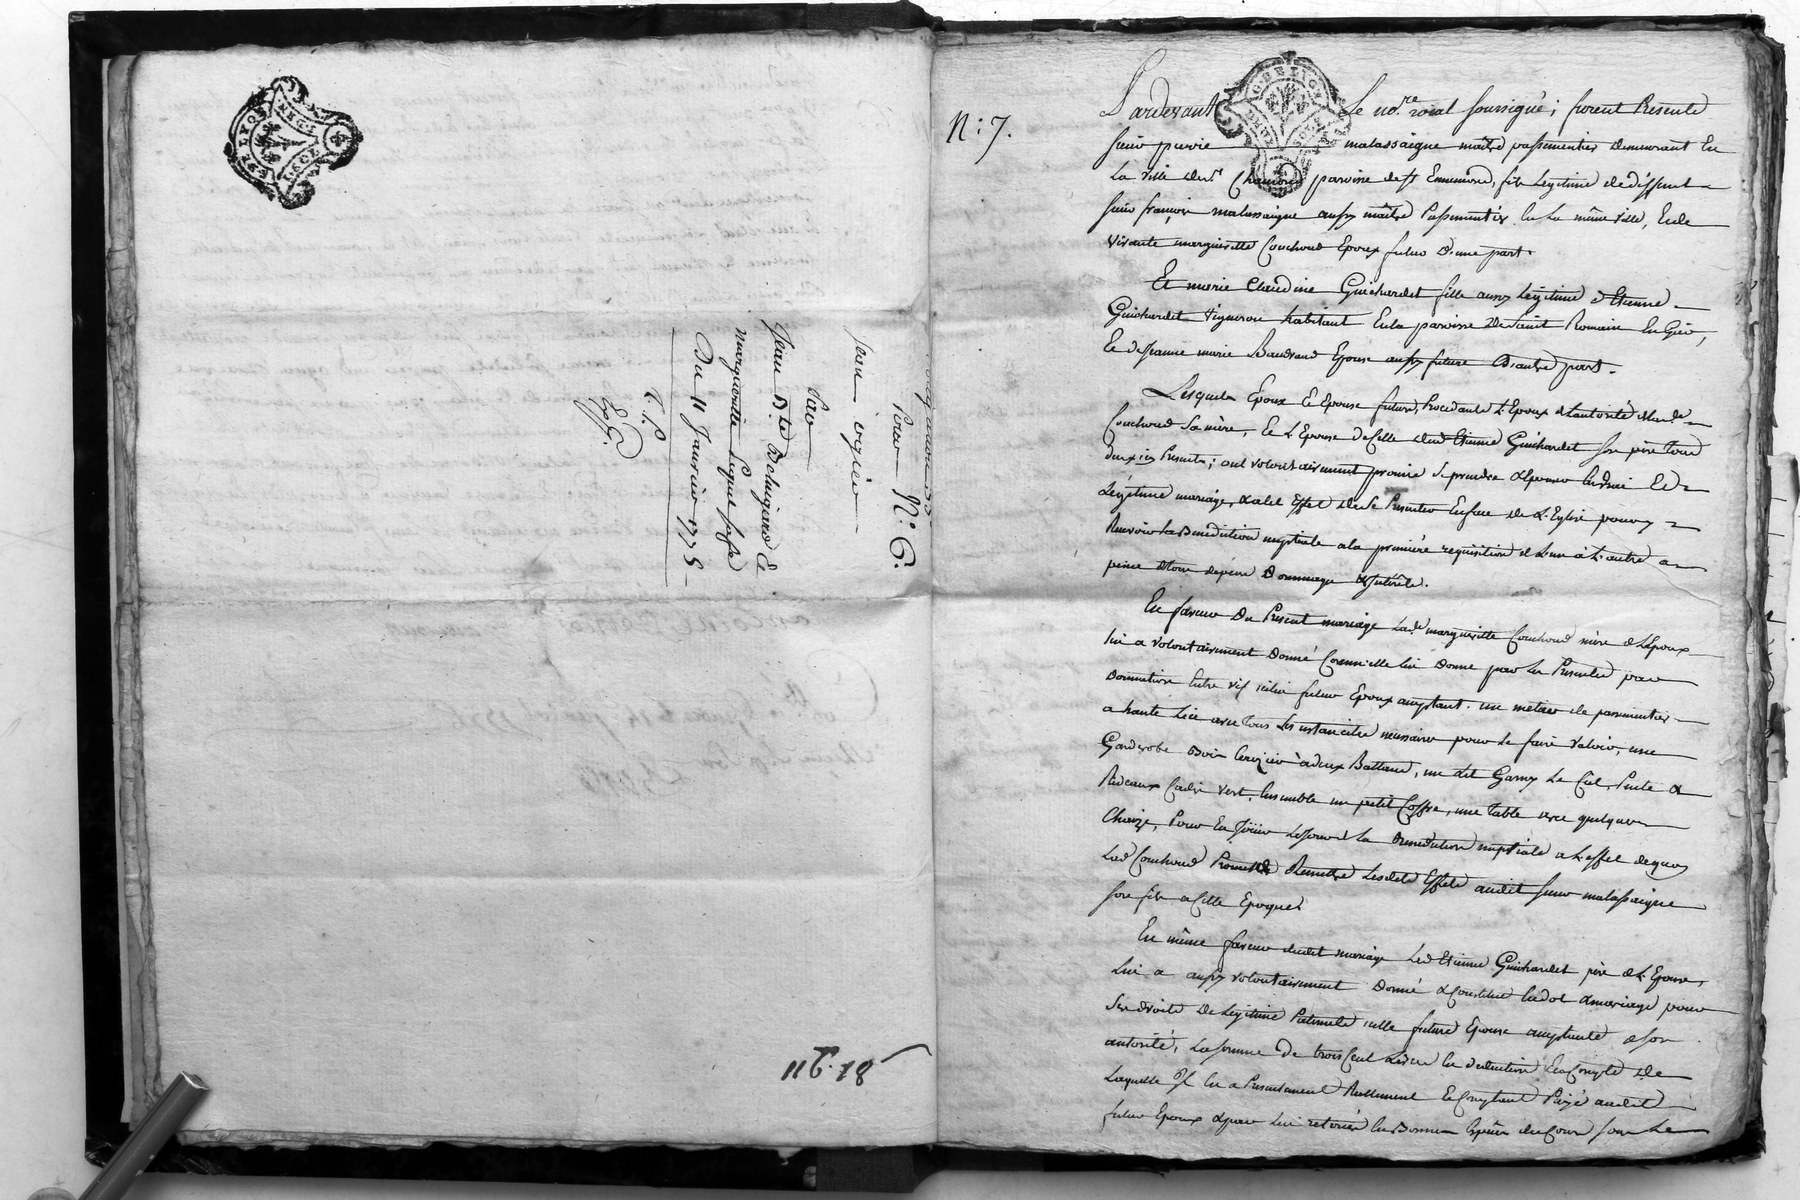 Pour N: 6.
Jean cizier
Par
Jean B.te Delaigard Et
marguerite
Du 11 Janvier 1775
11 18
G. DE LYON
N: 7.
Pardevant Le no.re roial soussigné; furent Presents
sieur pierre malassaigne maître passementier demeurant En
La Ville de s.t Chamond paroisse de st Ennemond, fils Legitime de deffunt
sieur françois malassaigne aussy maître Passementier En La même ville, Et de
vivante margueritte Couchoud Epoux futur D'une part.
Et marie Claudine Guichardet fille aussy Légitime d'Etienne
Guichardet Vigneron habitant En la paroisse De saint Romain En Gier,
Et de Jeanne marie Baudrand Epouse aussy future D'autre part.
Lesquels Epoux Et Epouse futurs, Procedants L'Epoux de L'autorité de lad.e
Couchoud sa mère, Et L'Epouse de Celle dud Etienne Guichardet son père tous
deux icy Presents; ont volontairement promis de prendre & Epouser En vrai Et
Légitime mariage, & a Cet Effet de Se Presenter En face de L'Eglise pour y
Recevoir La Benediction nuptiale a la première requisition de L'un à L'autre a
peine de tous depens Dommages & Intérêts.
En faveur Du Présent mariage La d.e margueritte Couchoud mère de L'Epoux
lui a volontairement Donné Comme elle lui Donne par Les Presentes par
Donnation Entre vifs icelui futur Epoux acceptant. un métier de passementier
a haute Lice avec tous Les ustancilles necessaires pour Le faire Valoir, une
Garderobe Bois Cerizier à deux Battants, un Lit Garny Le Ciel, Pente &
Rideaux Cadis Vert, Ensemble un petit Coffre, une table avec quelques
Chaizes, Pour En Joüir Le Jour de La Benediction nuptiale a L'effet de quoy
Lad Couchoud Promet de Remettre Lesdits Effets audit sieur malassaigne
son fils a Cette Epoque.
En même faveur dudit mariage Led Etienne Guichardet père de L'Epouse,
Lui a aussy volontairement Donné & Constitué En dot & mariage pour
Ses droits De Légitime Paternels icelle future Epouse acceptante de son
autorité, La somme De trois Cent Livres En deduction & a Compte De
Laquelle Il En a Presentement Reellement Et Comptant Payé audit
futur Epoux & par Lui retirée En Bonnes Espèces du Cours Sous Le